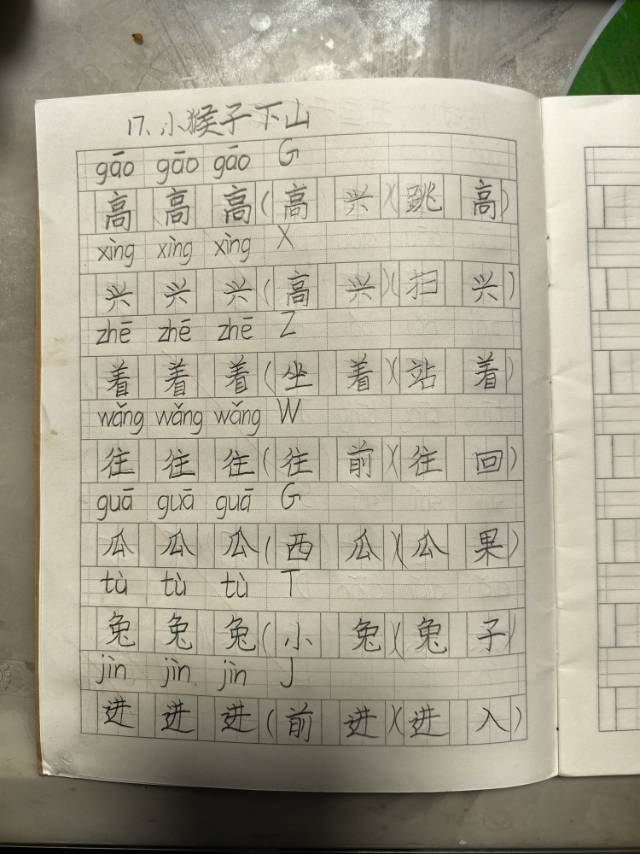 17、小猴子下山
gāo gāo gāo G
高 高 高(高 兴)(跳 高)
xìng xìng xìng X
兴 兴 兴(高 兴)(扫 兴)
zhē zhē zhē Z
着 着 着(坐 着)(站 着)
wǎng wǎng wǎng W
往 往 往(往 前)(往 回)
guā guā guā G
瓜 瓜 瓜(西 瓜)(瓜 果)
tù tù tù T
兔 兔 兔(小 兔)(兔 子)
jìn jìn jìn J
进 进 进(前 进)(进 入)